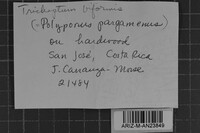 Trichaptum biforme
(=Polyporus pargamenus)
on hardwood
San José, Costa Rica
J. Carranza Morse
21484
ARIZ-M-AN23849